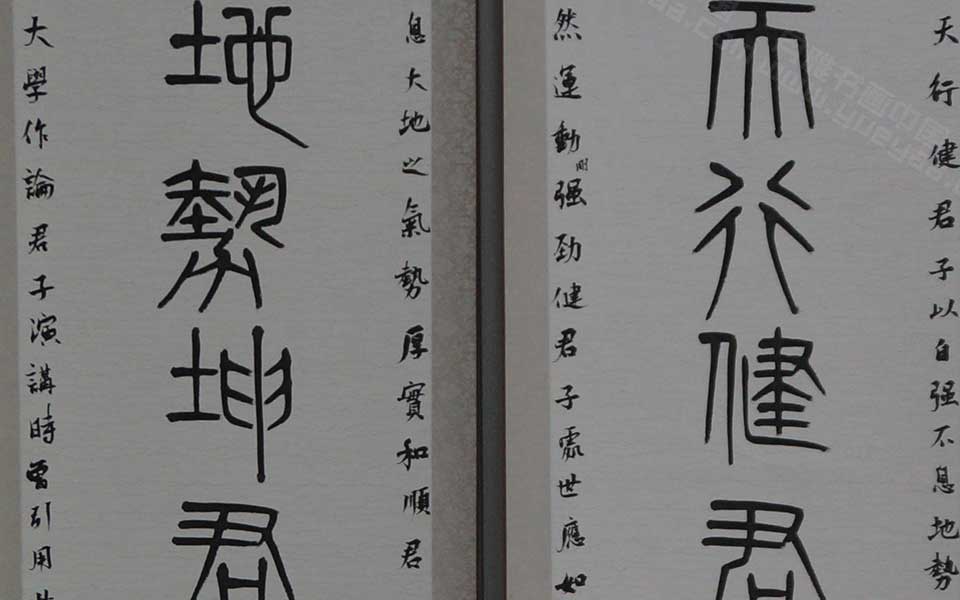 天行健君子以自强不息地勢
天行健君
然運動剛强劲健君子處世應如
息大地之氣勢厚實和順君
地勢坤君
大學作論君子演講時曾引用